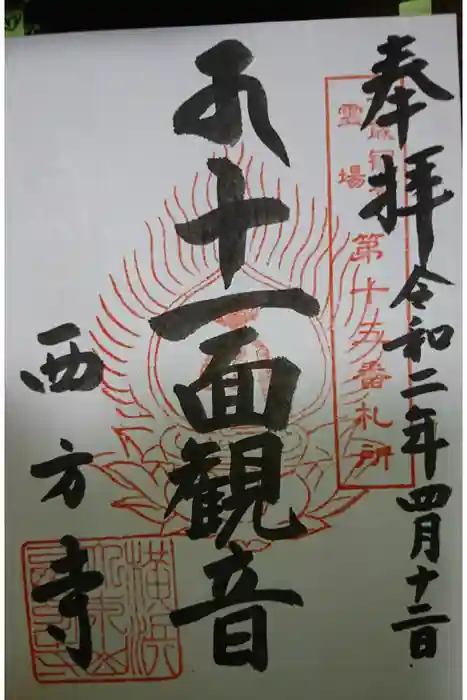 奉拝
令和二年四月十二日
霊場
第十五番札所
十一面観音
西方寺
横浜